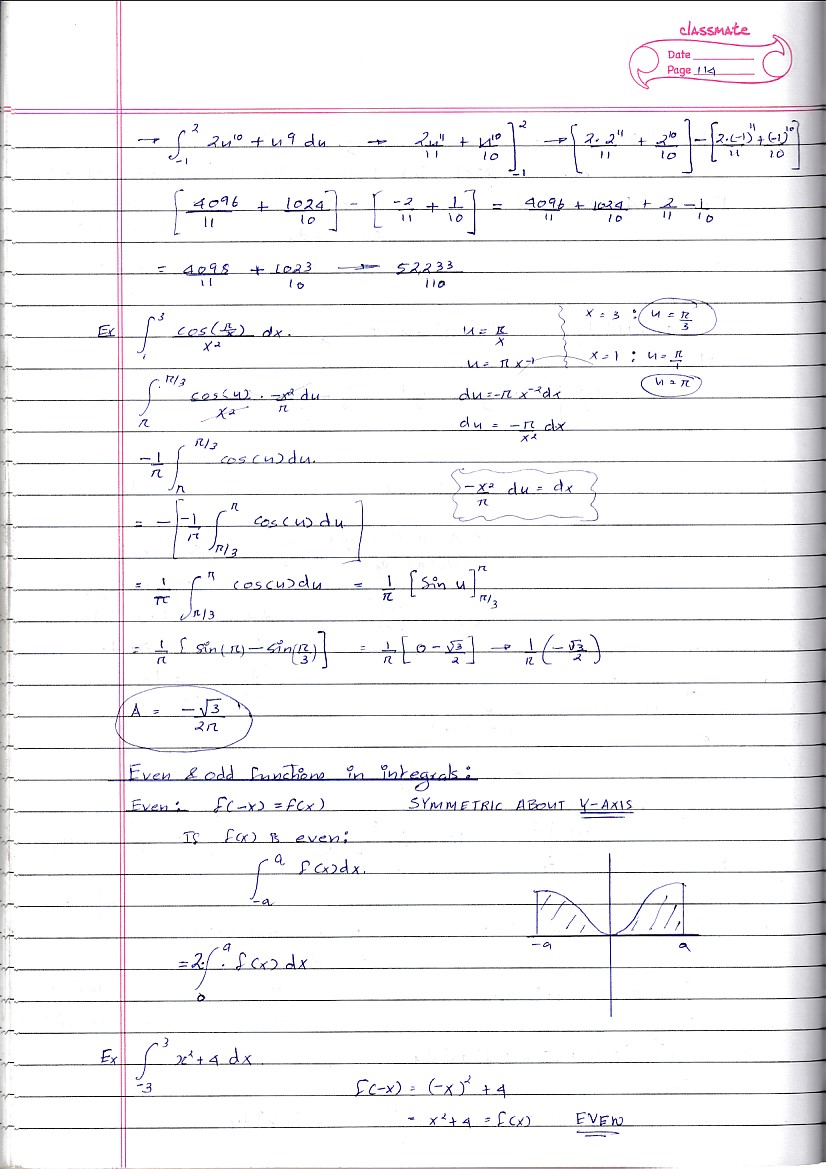 classmate
Date
Page 114
→ ∫_{-1}^{2} 2u^{10} + u^9 du → 2u^{11}/11 + u^{10}/10 ]_{-1}^{2} → [2·2^{11}/11 + 2^{10}/10] - [2·(-1)^{11}/11 + (-1)^{10}/10]
[4096/11 + 1024/10] - [-2/11 + 1/10] = 4096/11 + 1024/10 + 2/11 - 1/10
= 4098/11 + 1023/10 → 52,233/110
Ex ∫_{1}^{3} cos(π/x)/x² dx. u = π/x x = 3 : u = π/3
u = π x^{-1} x = 1 : u = π/1
∫_{π}^{π/3} cos(u)/x² · -x²/π du du = -π x^{-2} dx u = π
du = -π/x² dx
-1/π ∫_{π}^{π/3} cos(u) du.
-x²/π du = dx
= -[-1/π ∫_{π/3}^{π} cos(u) du]
= 1/π ∫_{π/3}^{π} cos(u) du = 1/π [sin u]_{π/3}^{π}
= 1/π [sin(π) - sin(π/3)] = 1/π [0 - √3/2] → 1/π (-√3/2)
A = -√3/2π
Even & odd functions in integrals:
Even: f(-x) = f(x) SYMMETRIC ABOUT Y-AXIS
If f(x) is even:
∫_{-a}^{a} f(x) dx.
-a a
= 2·∫_{0}^{a} f(x) dx
Ex ∫_{-3}^{3} x² + 4 dx
f(-x) = (-x)² + 4
= x² + 4 = f(x) EVEN